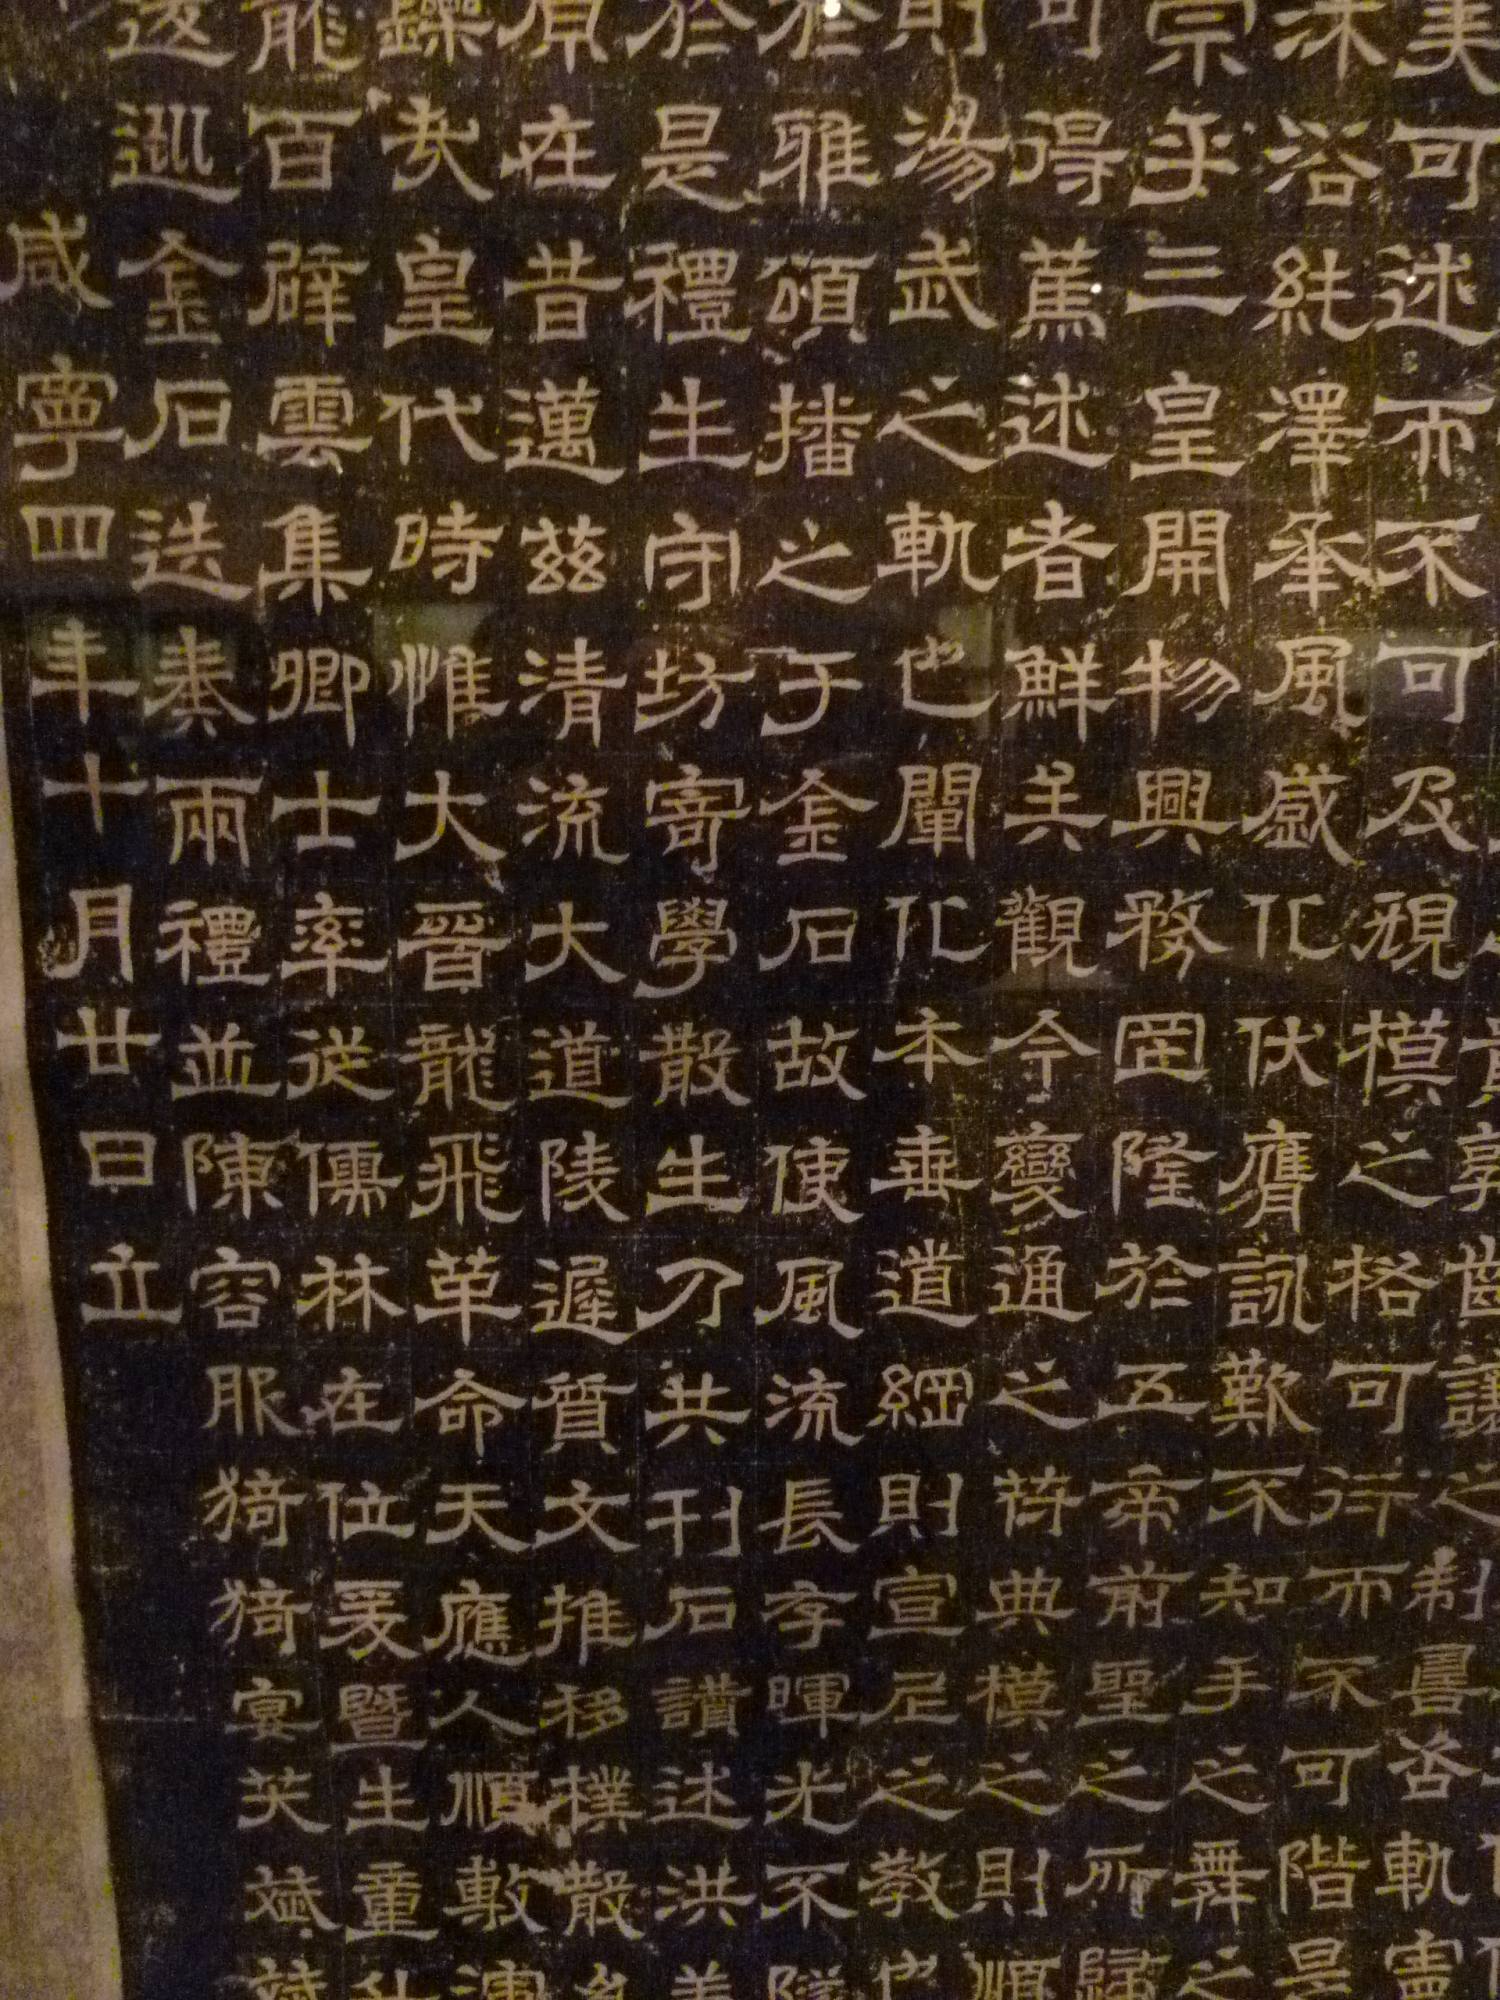 齒讓之制
軌憲
美可述而不可及規模之格可行而不可階是
沐浴純澤承風感化伏膺詠歎不知手之舞之
宗乎三皇開物興務罔隆於五帝前聖之所歸
可得焉述者鮮矣觀今變通之符典模之則順
則湯武之軌也闡化本垂道綱則宣尼之教也
於雅頌播之于金石故使風流長存暉光不隧
於是禮生守坊寄學散生乃共刊石讚述洪美
原在昔邁茲清流大道陵遲質文推移樸散
鑠矣皇代時惟大晉龍飛革命天應人順敷演
龍百辟雲集卿士率從儒林在位爰曁生童升
逡巡金石迭奏兩禮並陳容服猗猗宴笑斌斌
咸寧四年十月廿日立